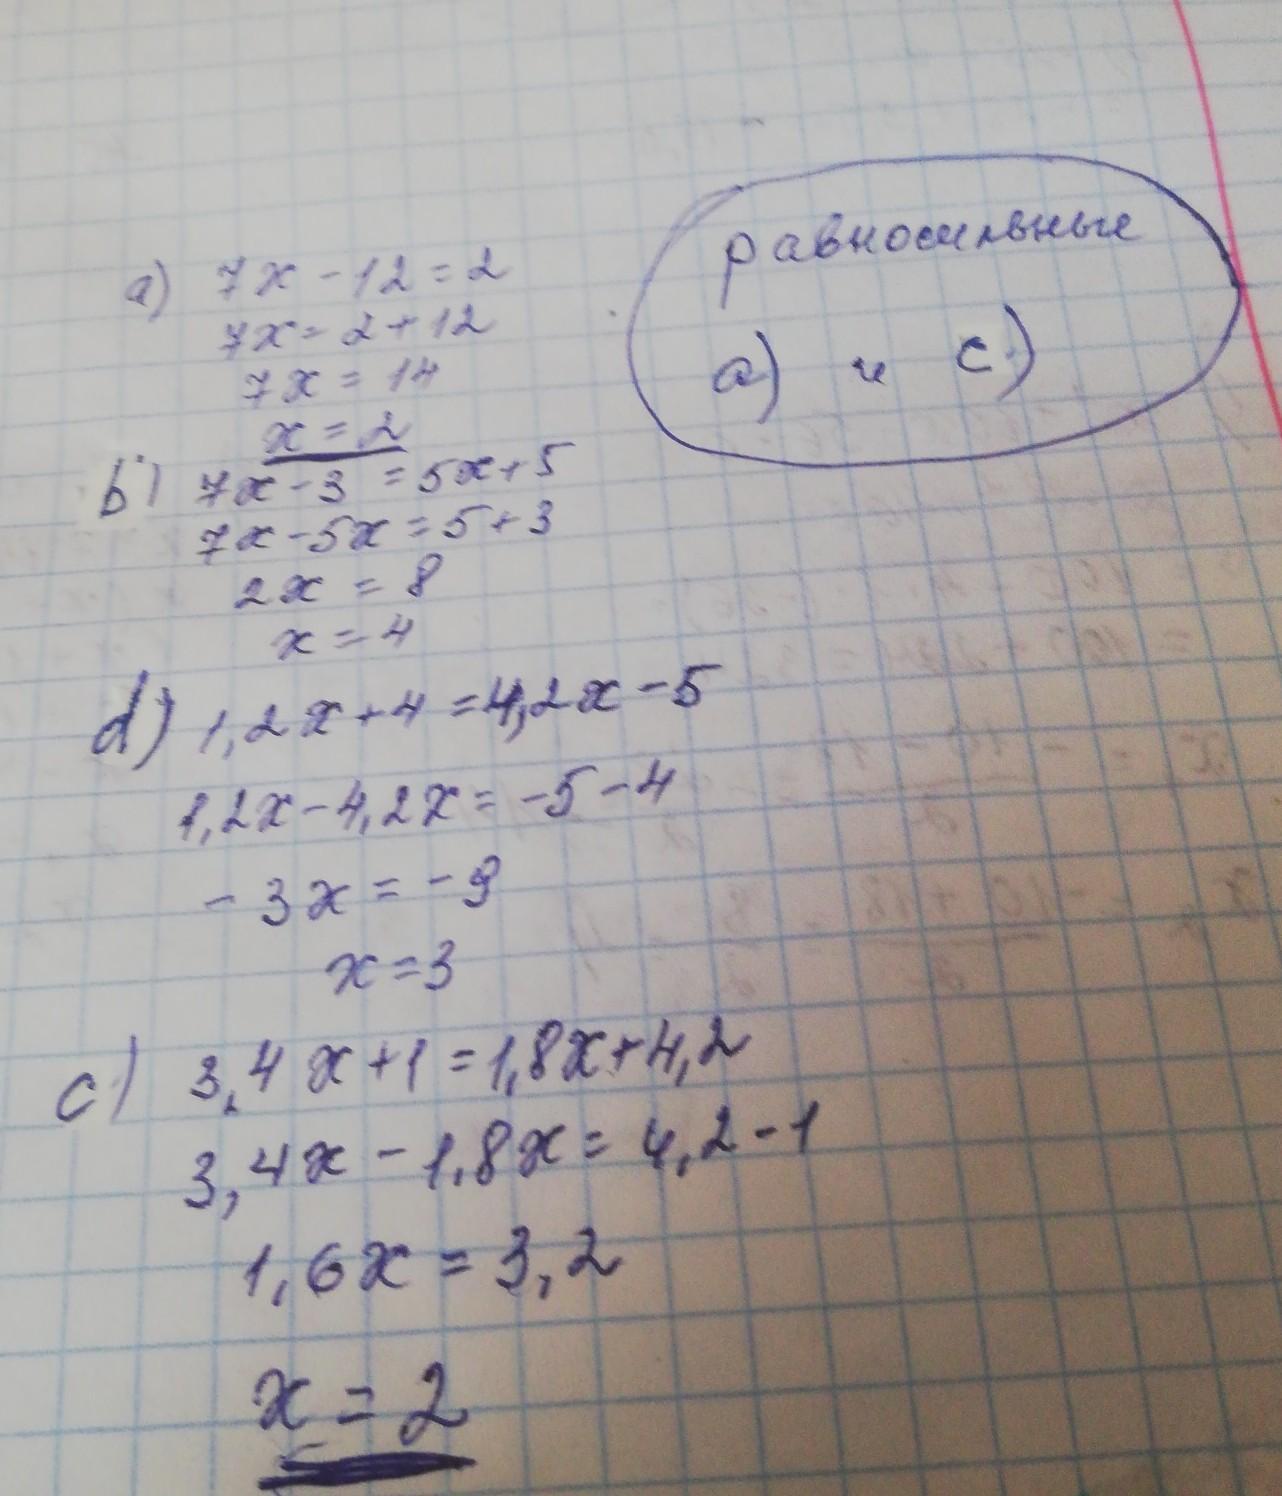 равносильные
а) и с)
а) 7x - 12 = 2
7x = 2 + 12
7x = 14
x = 2
b) 7x - 3 = 5x + 5
7x - 5x = 5 + 3
2x = 8
x = 4
d) 1,2x + 4 = 4,2x - 5
1,2x - 4,2x = -5 - 4
- 3x = - 9
x = 3
c) 3,4x + 1 = 1,8x + 4,2
3,4x - 1,8x = 4,2 - 1
1,6x = 3,2
x = 2